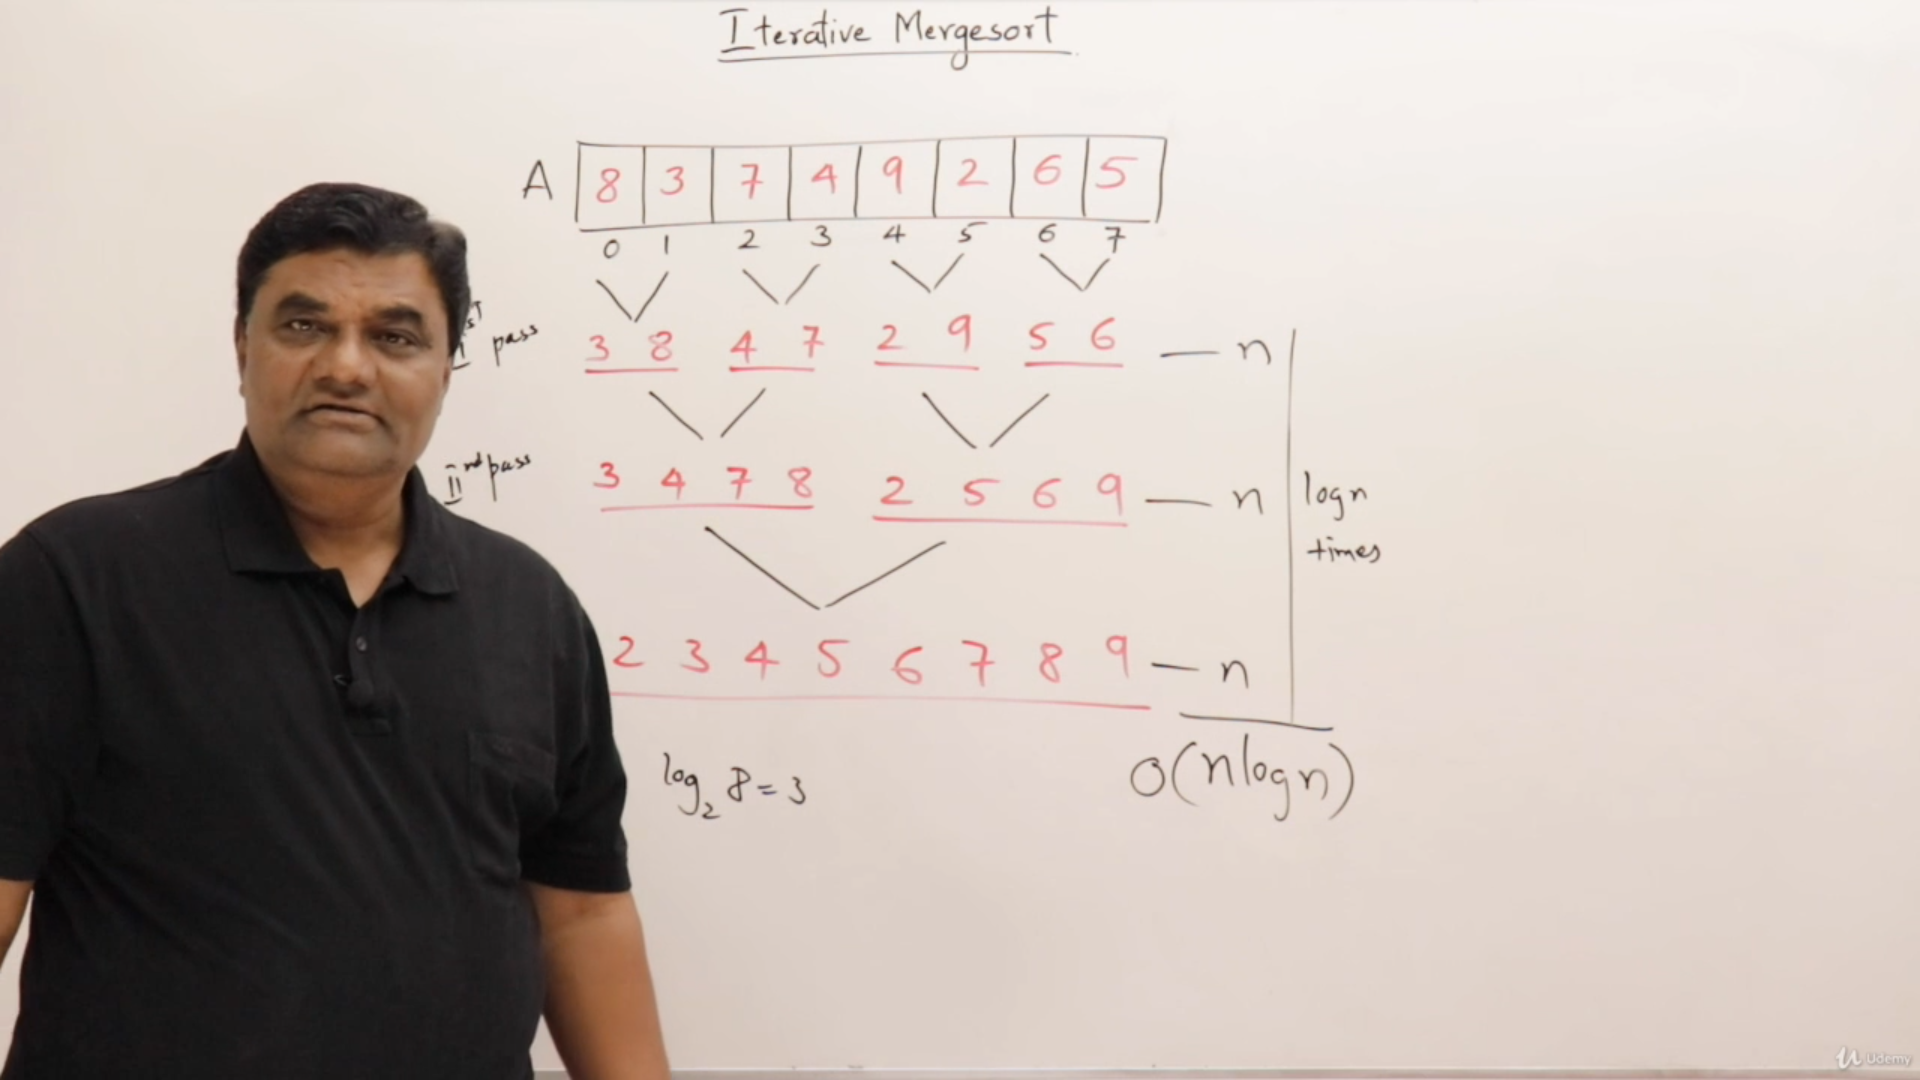 Iterative Mergesort
A 8 3 7 4 9 2 6 5
0 1 2 3 4 5 6 7
Ist pass 3 8 4 7 2 9 5 6 — n
IInd pass 3 4 7 8 2 5 6 9 — n
logn
times
2 3 4 5 6 7 8 9 — n
log₂ 8 = 3
O(nlogn)
Udemy